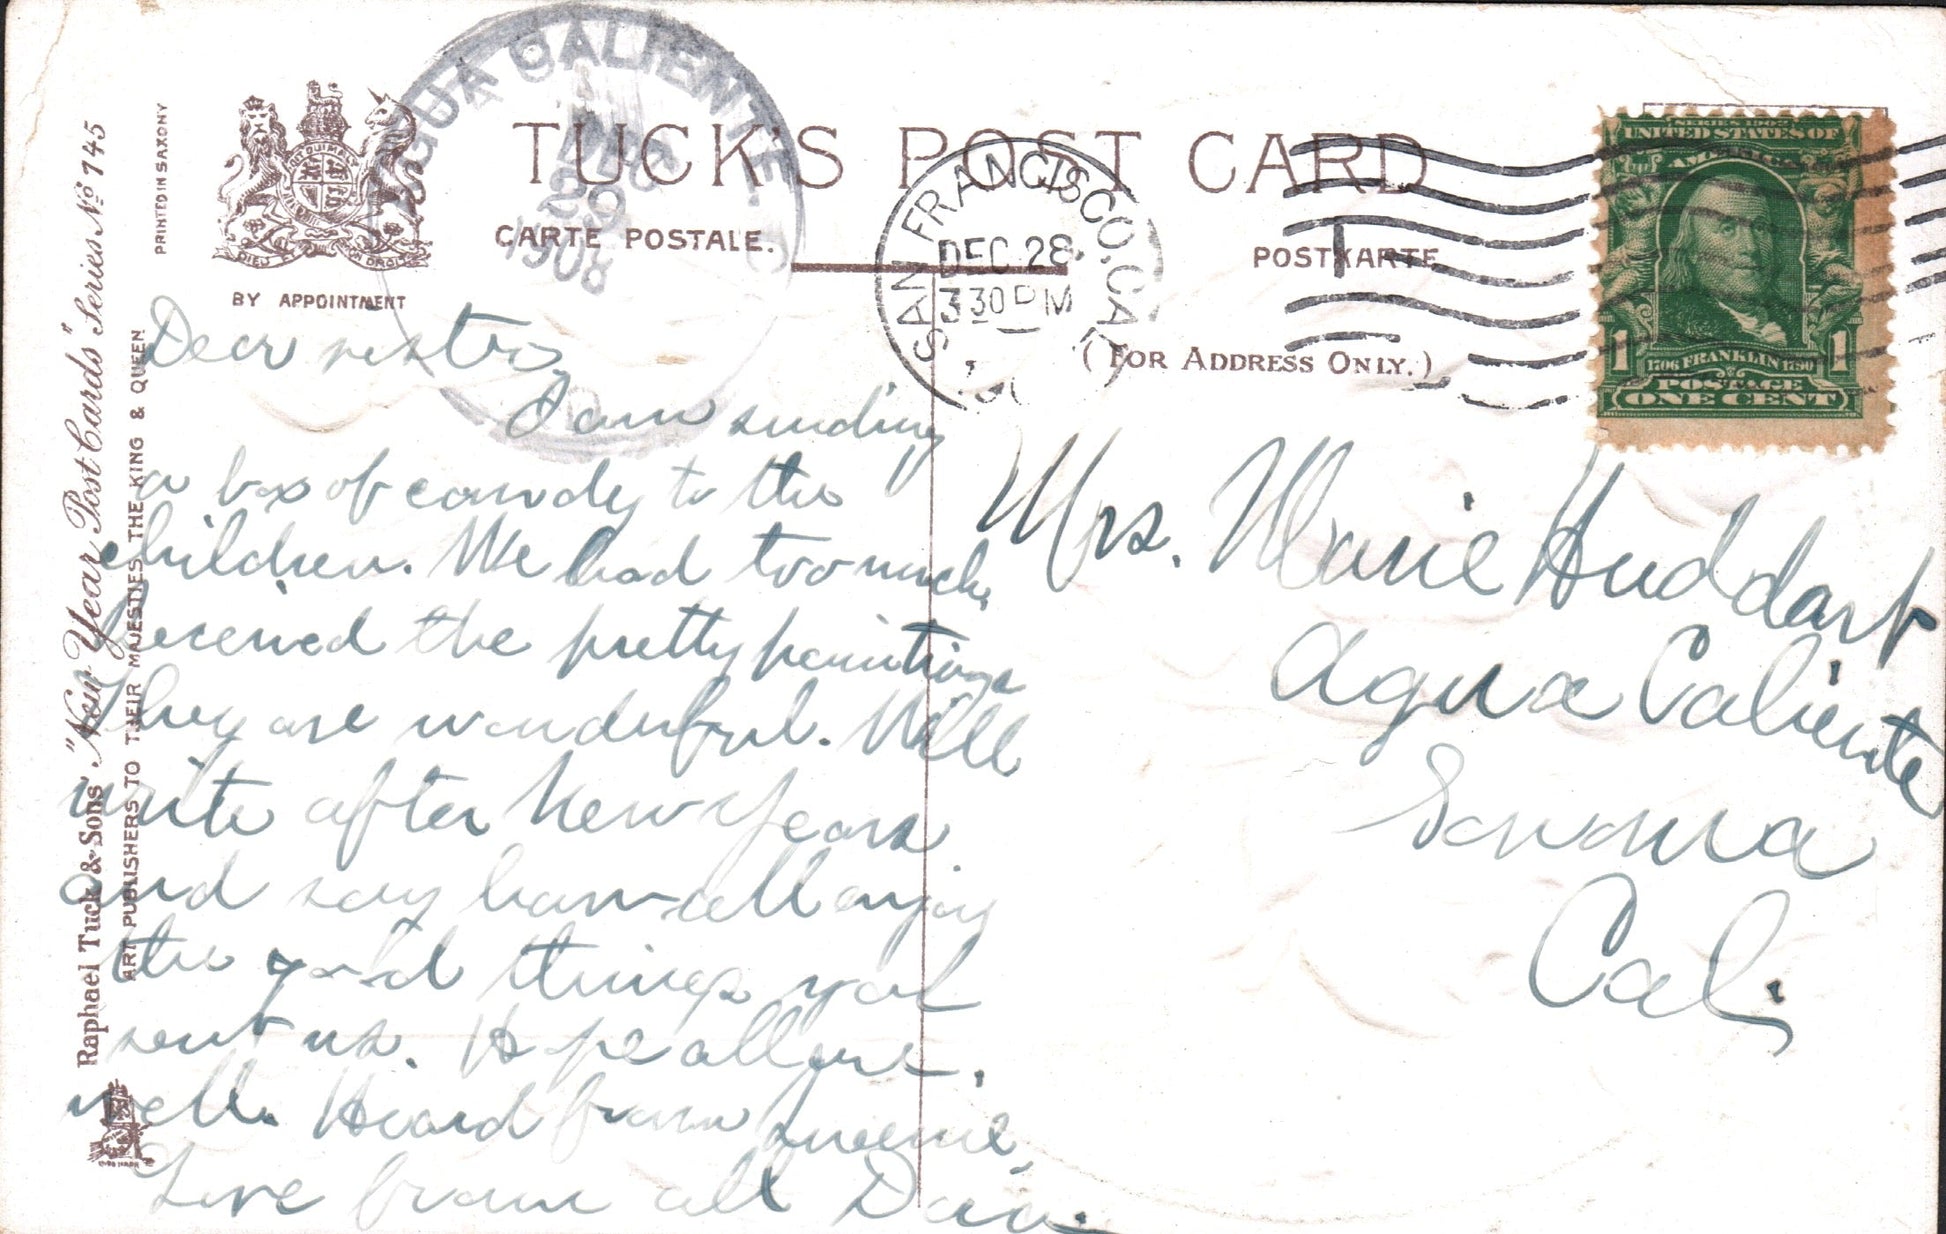 TUCK'S POST CARD
CARTE POSTALE.
POSTKARTE
(FOR ADDRESS ONLY.)
BY APPOINTMENT
DIEU ET MON DROIT
PRINTED IN SAXONY
Raphael Tuck & Sons' "New Year Post Cards" Series No 745
ART PUBLISHERS TO THEIR MAJESTIES THE KING & QUEEN.
TRADE MARK
AGUA CALIENTE.
DEC
29
1908
SAN FRANCISCO, CAL
DEC 28
3 30 PM
SERIES 1902
UNITED STATES OF
AMERICA
1 1706 FRANKLIN 1790 1
POSTAGE
ONE CENT
Dear sister,
I am sending
a box of candy to the
children. We had too much,
Received the pretty paintings
They are wonderful. Will
write after New Years
and say how all enjoy
the good things you
sent us. Hope all are
well. Heard from
Love from all
Mrs. Marie Huddart
Agua Caliente
Sonoma
Cal;